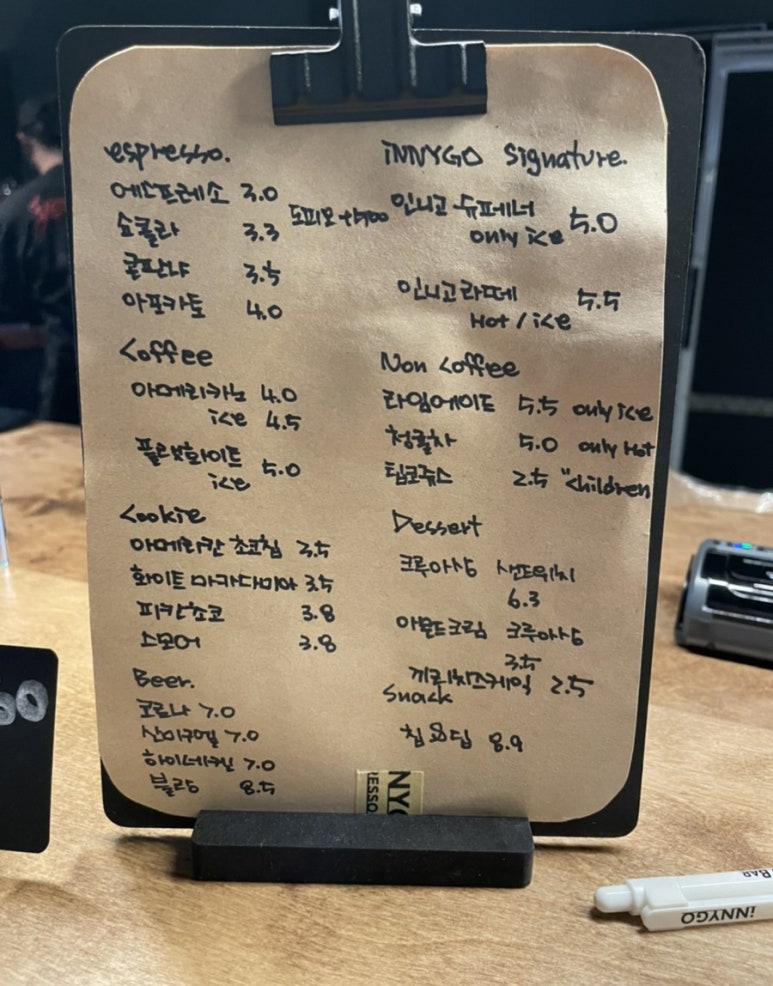 espresso.
에스프레소 3.0
쇼콜라 3.3
도피오 +1500
콘판나 3.5
아포카토 4.0
Coffee
아메리카노 4.0
ice 4.5
플랫화이트
ice 5.0
Cookie
아메리칸 초코칩 3.5
화이트 마카다미아 3.5
피칸쵸코 3.8
스모어 3.8
Beer.
코로나 7.0
산미구엘 7.0
하이네켄 7.0
블랑 8.5
iNNYGO Signature.
인니고 슈페너 5.0
only ice
인니고라떼 5.5
Hot / ice
Non Coffee
라임에이드 5.5 only ice
청귤차 5.0 only Hot
팁코쥬스 2.5 "children
Dessert
크루아상 샌드위치
6.3
아몬드크림 크루아상
3.5
끼리치즈케익 2.5
Snack
칩&딥 8.9
NYG
RESSO
BAR
iNNYGO